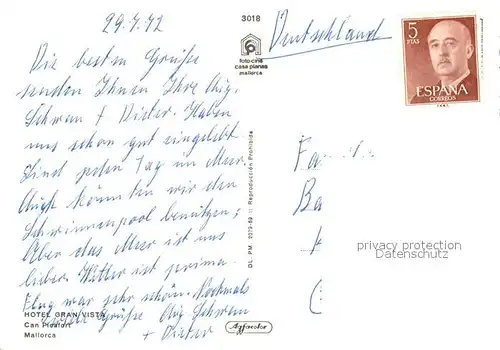 29.7.72
Die besten Grüße
senden Ihnen Ihre Aug.
Schwan + Dieter. Haben
uns schon gut eingelebt
Sind jeden Tag im Meer.
Auch könnten wir den
Schwimmenpool benützen;
Aber das Meer ist uns
lieber. Wetter ist prima.
Flug war sehr schön. Nochmals
viele Grüße Aug. Schwan
+ Dieter
HOTEL GRAN VISTA
Can Picafort
Mallorca
3018
foto-cine
casa planas
mallorca
DL. PM. 2073-69 Reproducción Prohibida
Agfacolor
Deutschland
5
PTAS
ESPAÑA
CORREOS
Fa
Ba
privacy protection
Datenschutz